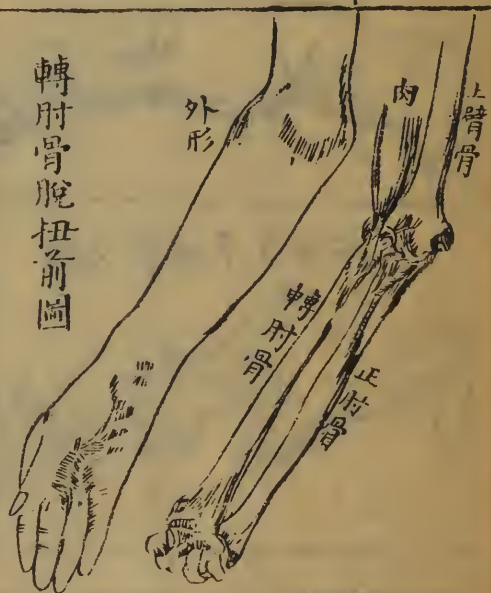 轉肘骨脫扭前圖
外形
肉
上臂骨
轉肘骨
正肘骨